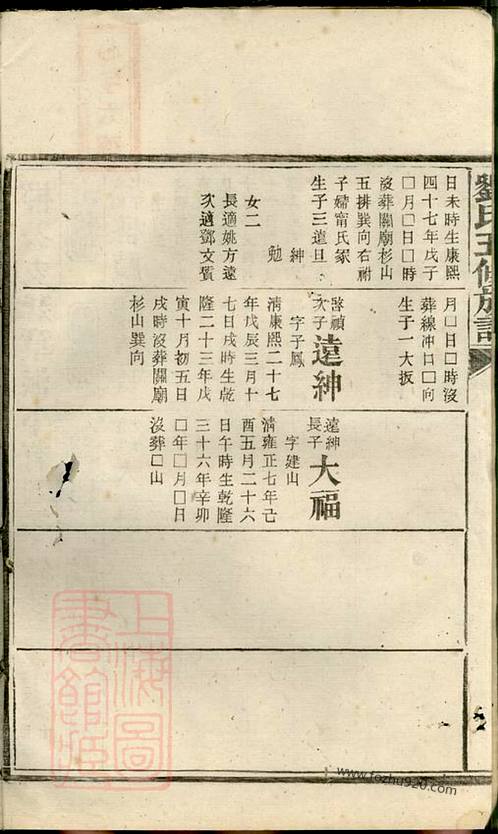 劉氏五修族譜
日未時生康熙
四十七年戊子
□月□日□時
沒葬關廟杉山
五排巽向右祔
子婦甯氏冢
生子三遠旦
紳
勉
女二
長適姚方遠
次適鄧文質
月□日□時沒
葬線冲□□向
生子一大扳
啓禎
次子
遠紳
字子鳳
清康熙二十七
年戊辰三月十
七日戌時生乾
隆二十三年戊
寅十月初五日
戌時沒葬關廟
杉山巽向
遠紳
長子
大福
字建山
清雍正七年己
酉五月二十六
日午時生乾隆
三十六年辛卯
□年□月□日
沒葬□山
上海圖
書館藏
www.fozhu920.com